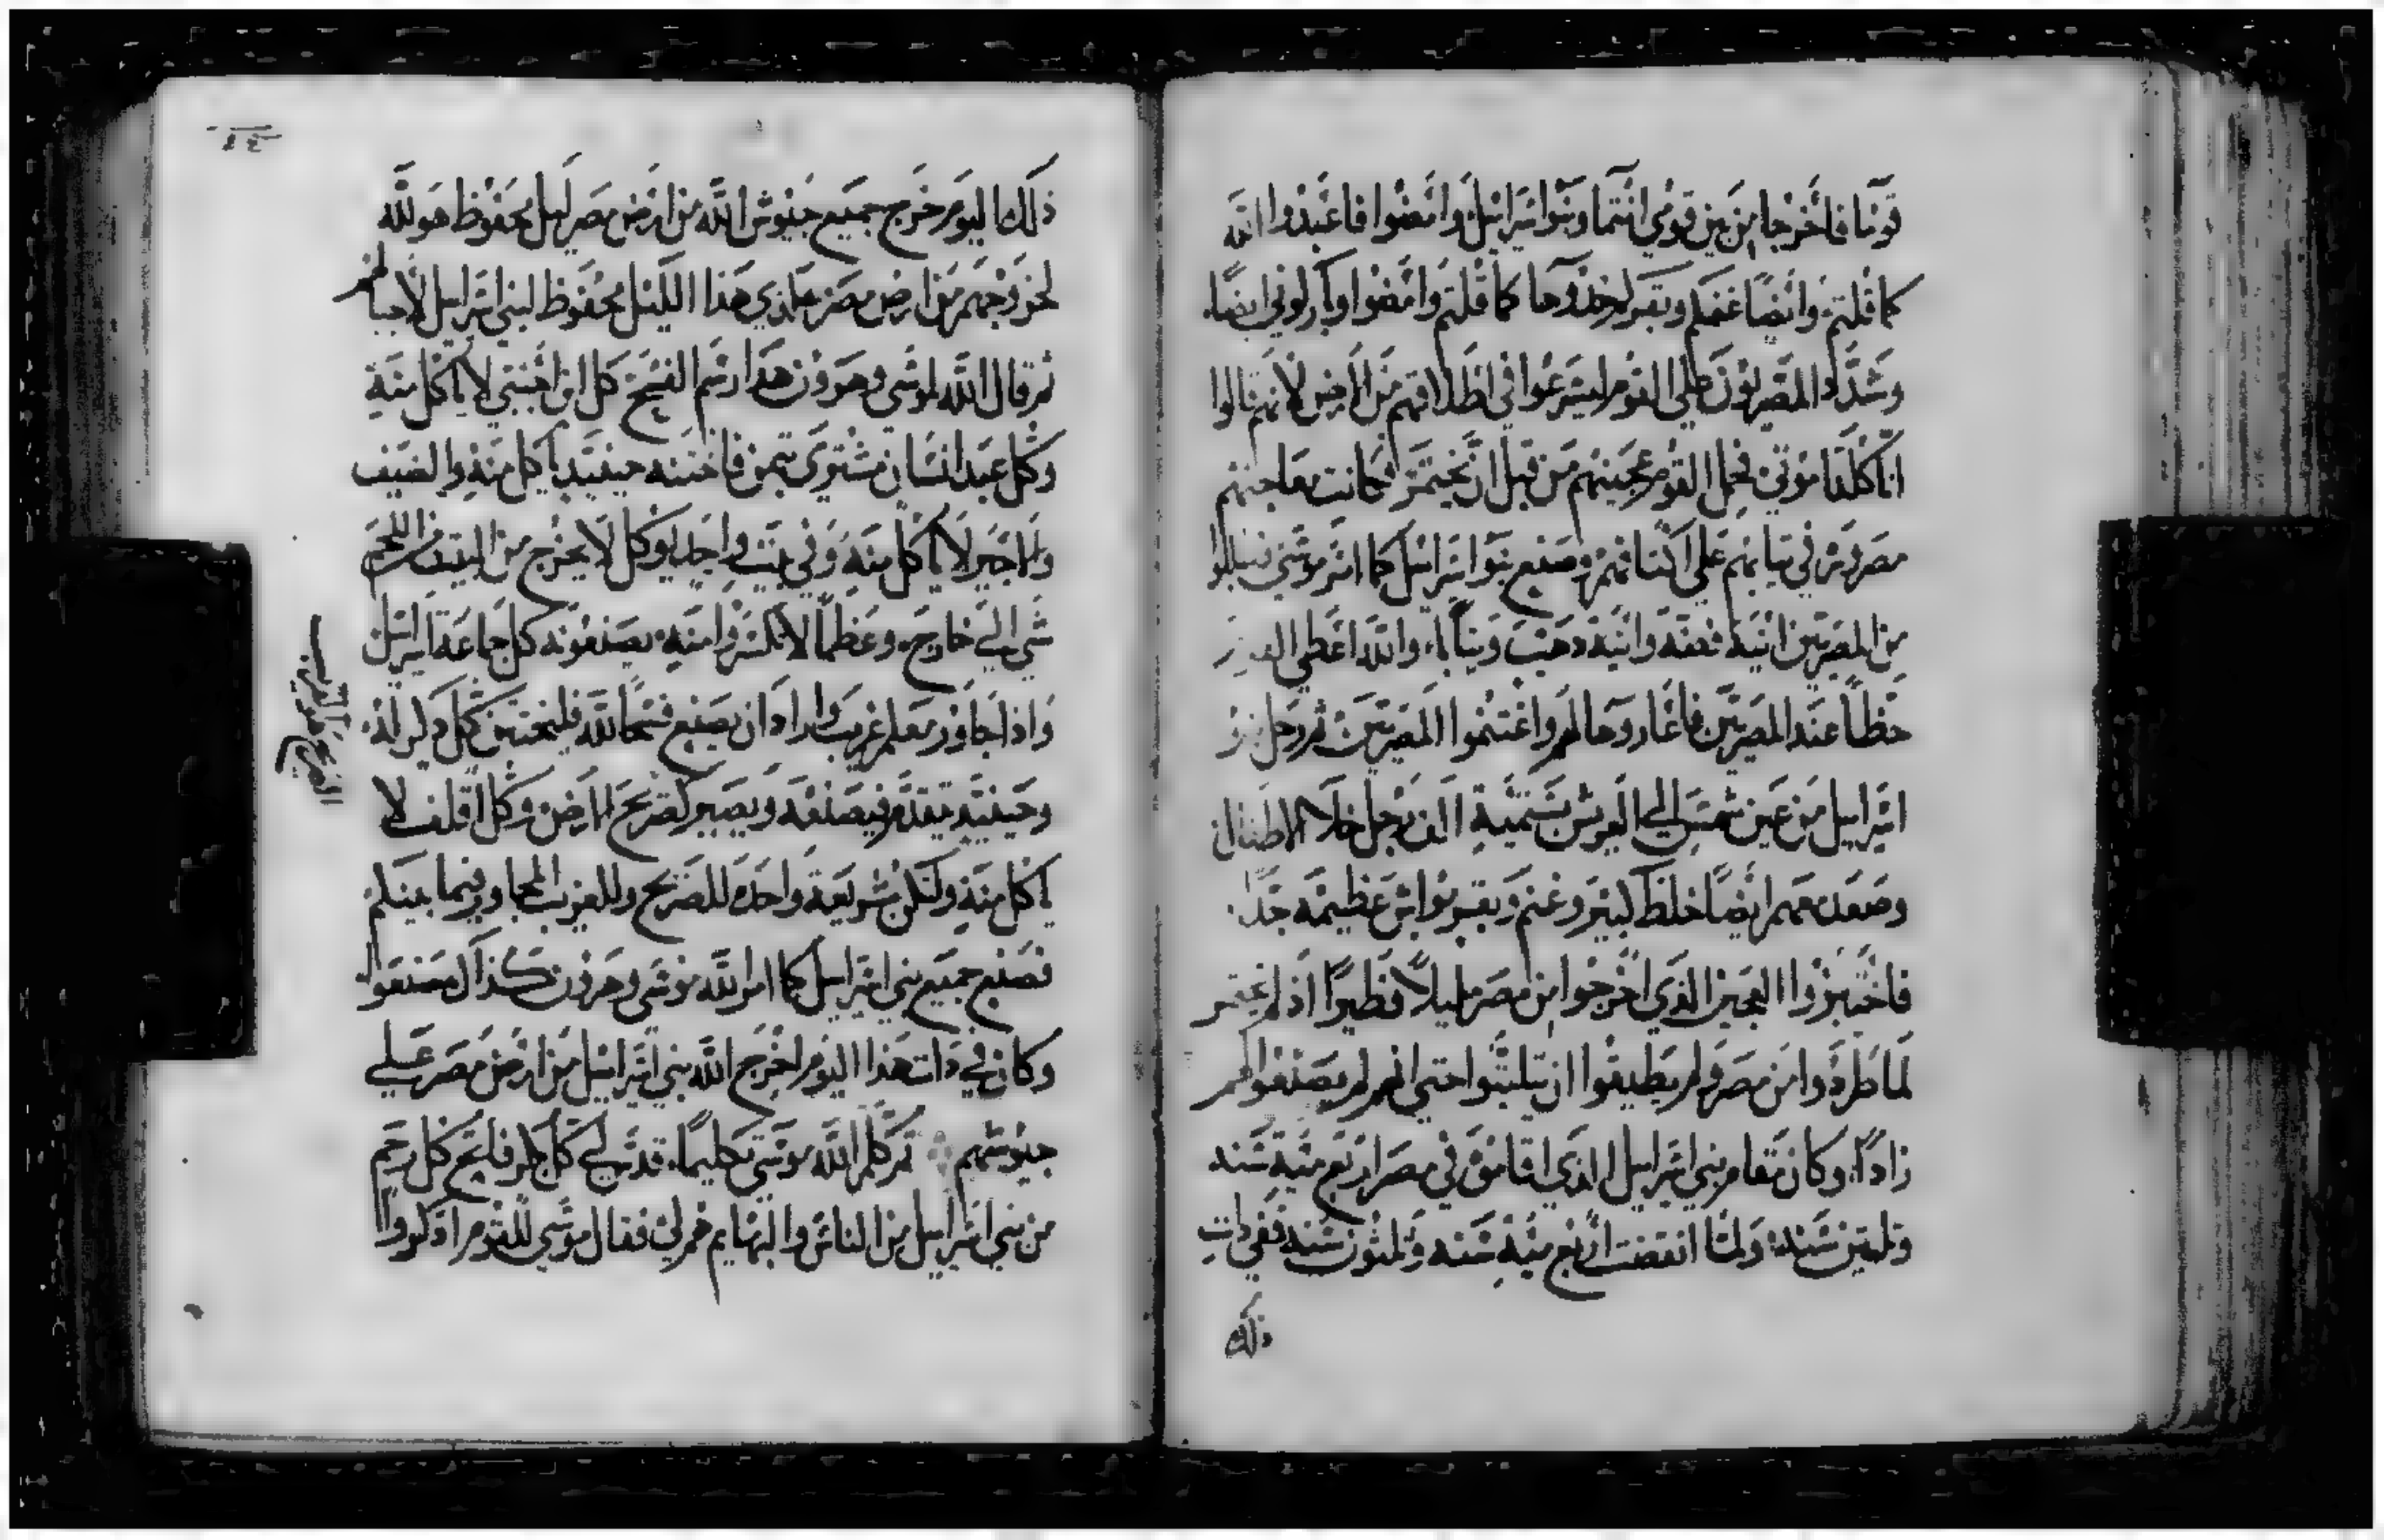 قوما فاخرجا من بين قومي انتما وبنوا اسرايل وامضوا فاعبدوا الله
كما قلتم وايضا غنمكم وبقركم خذوها كما قلتم وامضوا وباركوني ايضا
وشدد المصريون على القوم ليسرعوا في اطلاقهم من الارض لانهم قالوا
انا كلنا موتى فحمل القوم عجينهم من قبل ان يختمر فكانت معاجنهم
مصرورة في ثيابهم على اكتافهم وصنع بنوا اسرايل كما امر موسى فسالوا
من المصريين انية فضة وانية ذهب وثيابا والله اعطى القوم
حظا عند المصريين فاعاروها لهم واغتنموا المصريين ثم رحل بنو
اسرايل من عين شمس الي العريش بستمية الف رجل خلا الاطفال
وصعد معهم ايضا خلط كبير وغنم وبقر مواش عظيمة جدا
فاختبزوا العجين الذي اخرجوا من مصر مليلا فطيرا اذ لم يختمر
لما طردوا من مصر ولم يطيقوا ان يتلبثوا حتي انهم لم يصنعوا لهم
زادا وكان مقام بني اسرايل الذي اقاموه في مصر اربع مية سنه
وثلثين سنة ولما انقضت اربع مية سنه وثلثون سنه ففي ذات
ذلك
١٤
ذلك اليوم خرج جميع جيوش الله من ارض مصر ليل محفوظ هو لله
لخروجهم من ارض مصر هذا الليل محفوظ لبني اسرايل لاجيالهم
ثم قال الله لموسى وهرون هذا رسم الفسح كل ابن اجنبي لا ياكل منه
وكل عبد انسان مشترى بثمن فاختنه حينيذ ياكل منه والضيف
والاجير لا ياكل منه وفي بيت واحد يوكل لا يخرج من البيت من اللحم
شي الي خارج وعظما لا تكسروا منه يصنعونه كل جماعة اسرايل
واذا جاور معكم غريب واراد ان يصنع فسحا لله فليختتن كل ذكر له
وحينيذ يتقدم فيصنعه ويصير كصريح الارض وكل اقلف لا
ياكل منه ولتكن شريعة واحده للصريح وللغريب المجاور فيما بينكم
فصنع جميع بني اسرايل كما امر الله موسى وهرون كذاك صنعوا
وكان في ذات هذا اليوم اخرج الله بني اسرايل من ارض مصر علي
جيوشهم ثم كلم الله موسى تكليما قدس لي كل بكر فاتح كل رحم
من بني اسرايل من الناس والبهايم هم لي فقال موسى للقوم اذكروا